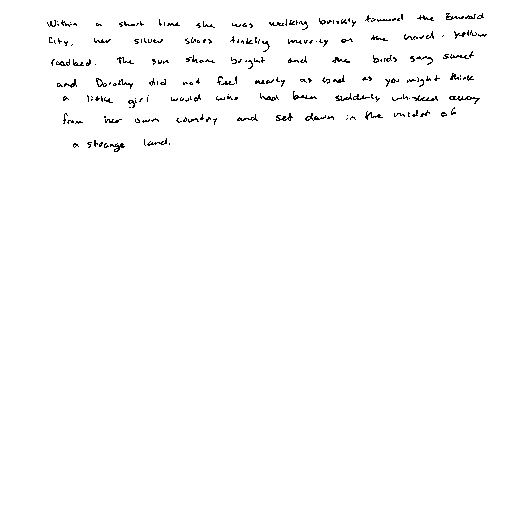 Within a short time she was walking briskly toward the Emerald
City, her silver shoes tinkling merrily on the hard, yellow
roadbed. The sun shone bright and the birds sang sweet
and Dorothy did not feel nearly as bad as you might think
a little girl would who had been suddenly whisked away
from her own country and set down in the midst of
a strange land.